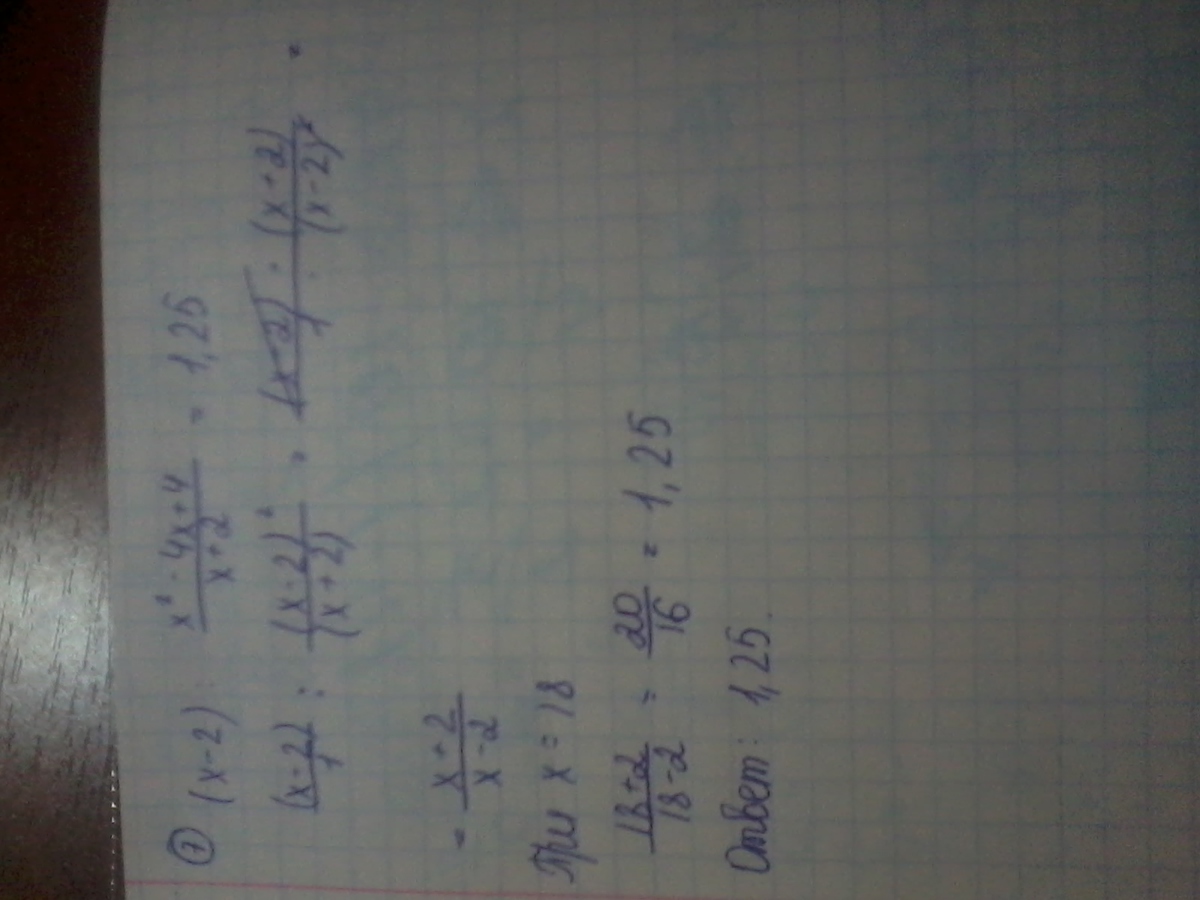 ⑦ (x-2) : x² - 4x + 4 / x + 2 = 1,25
(x-2) / 1 : (x-2)² / (x+2) = (x-2) / 1 · (x+2) / (x-2)² =
= x + 2 / x - 2
При x = 18
18+2 / 18-2 = 20 / 16 = 1,25
Ответ: 1,25.